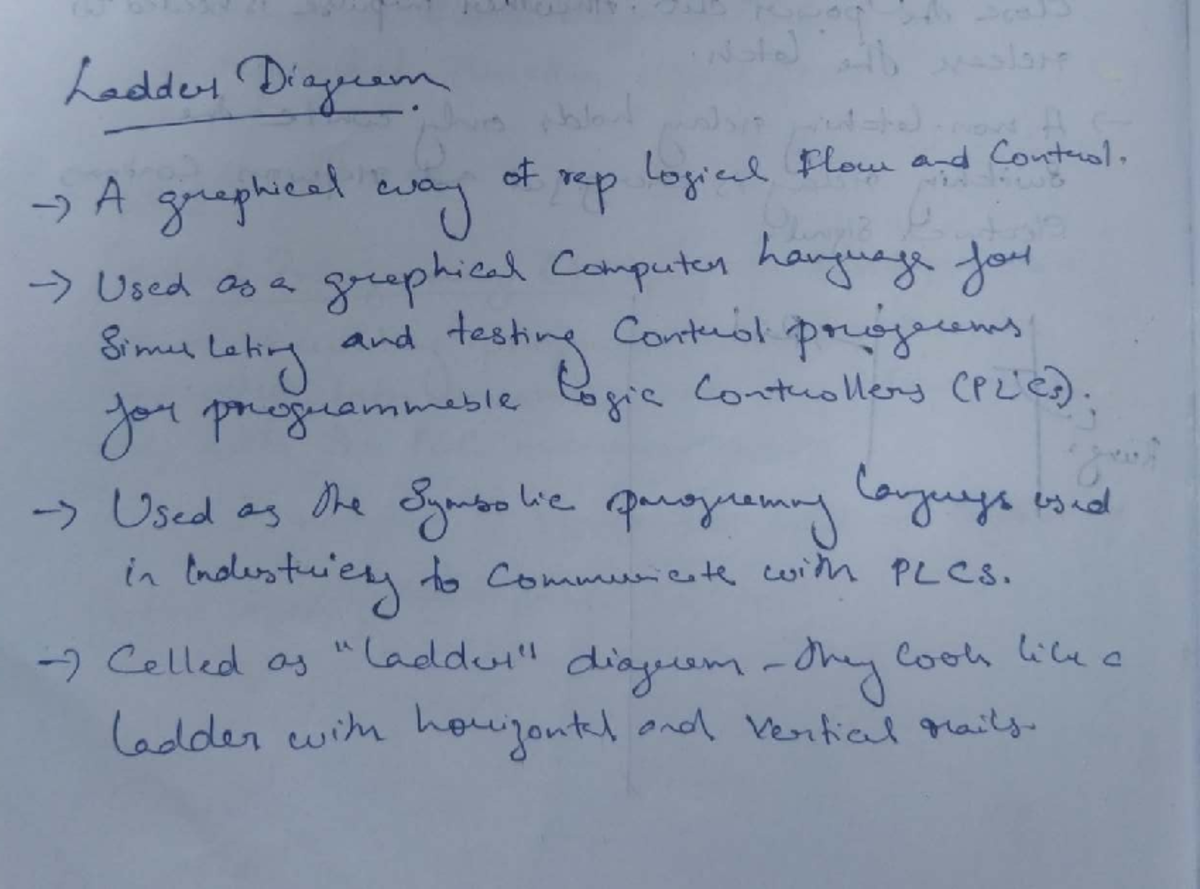 Ladder Diagram.
→ A graphical way of rep logical Flow and Control.
→ Used as a graphical Computer Language for
Simulating and testing Control programs
for programmable logic Controllers (PLCs).
→ Used as the Symbolic programmg language used
in Industries to Communicate with PLCS.
→ Called as "ladder" diagram - they look like a
ladder with horizontal and vertical rails.